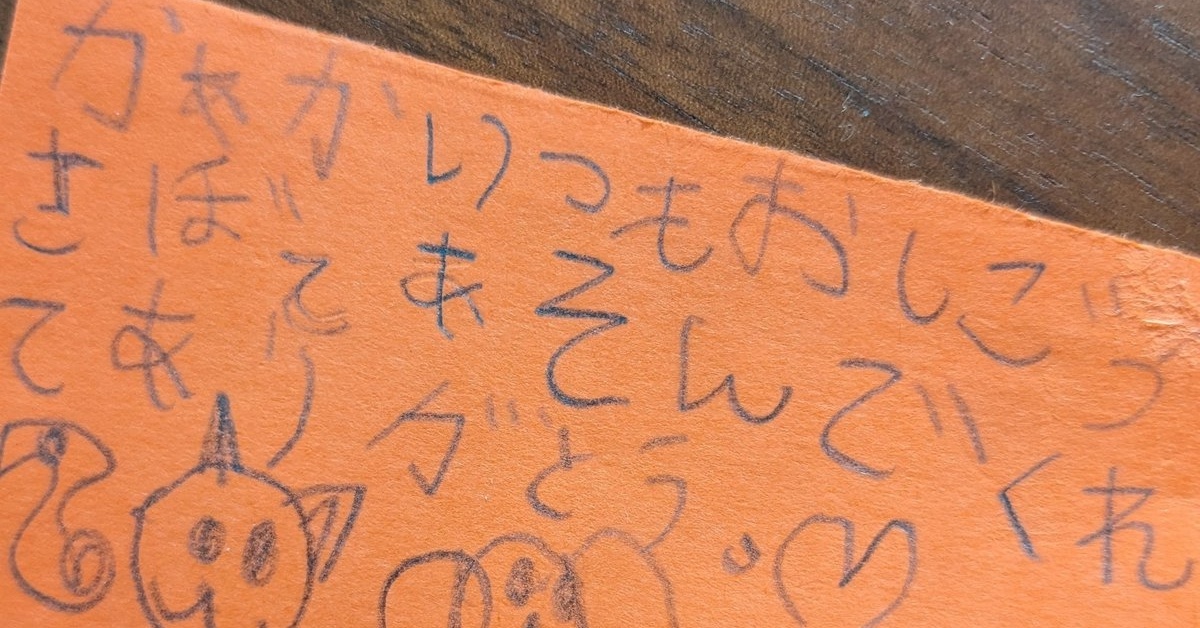 かあかいつもおしごつ
さぼてあそんでくれ
てありがとう